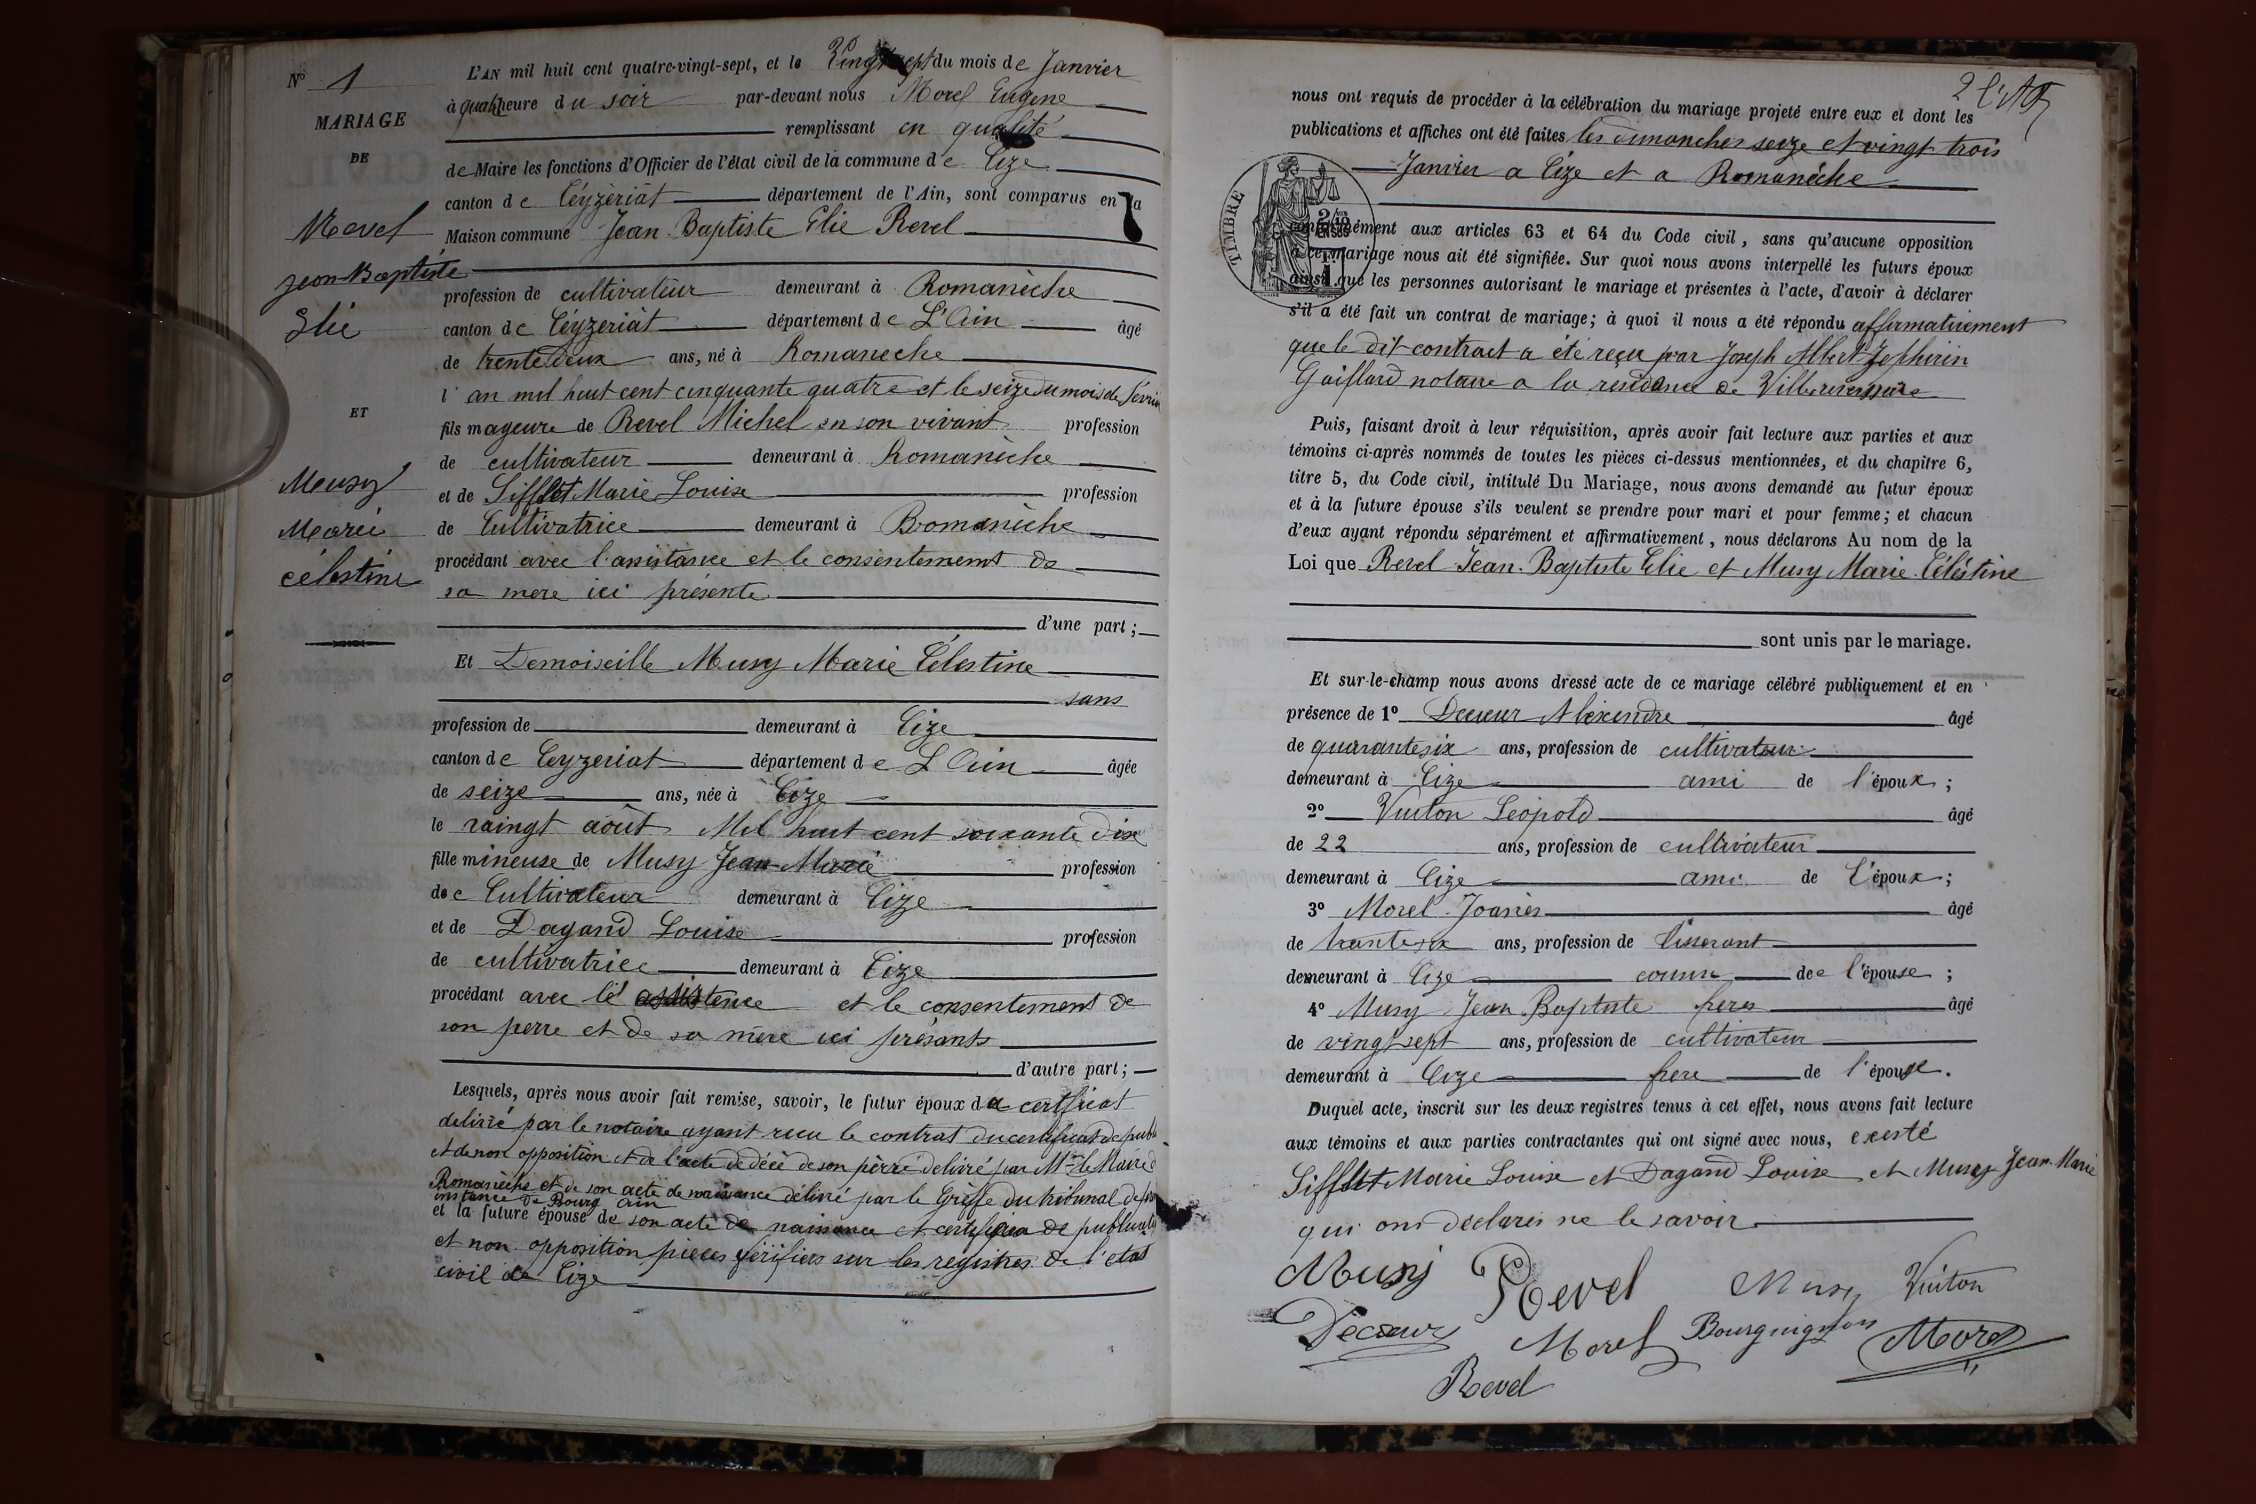 N° 1
MARIAGE
DE
Revel
Jean-Baptiste
Elie
ET
Musy
Marie
célestine
L'AN mil huit cent quatre-vingt-sept, et le Vingt sept du mois de Janvier
à quatre heure du soir par-devant nous Morel Eugene
remplissant en qualité
de Maire les fonctions d'Officier de l'état civil de la commune de Cize
canton de Céyzériat département de l'Ain, sont comparus en la
Maison commune Jean Baptiste Elie Revel
profession de cultivateur demeurant à Romanèche
canton de Céyzeriat département de L'Ain âgé
de trente deux ans, né à Romaneche
l'an mil huit cent cinquante quatre et le seize du mois de Février
fils mageure de Revel Michel en son vivant profession
de cultivateur demeurant à Romanèche
et de Sifflet Marie Louise profession
de Cultivatrice demeurant à Bromanèche
procédant avec l'assistance et le consentement de
sa mere ici présente
d'une part ;
Et Demoiseille Musy Marie Célestine
sans
profession de demeurant à Cize
canton de Ceyzeriat département de L'Ain âgée
de seize ans, née à Cize
le vaingt août Mil huit cent soixante dix
fille mineuse de Musy Jean-Marie profession
de Cultivateur demeurant à Cize
et de Dagand Louise profession
de cultivatrice demeurant à Cize
procédant avec lé assistence et le consentement de
son perre et de sa mère ici présants
d'autre part ;
Lesquels, après nous avoir fait remise, savoir, le futur époux du certficat
delivré par le notaire ayant recu le contrat du certificat de publi
et de non opposition et de l'acte de décè de son pèrré delivré par Mr le Maire de
Romanèche et de son acte de naissance délivré par le Greffe du tribunal de
instance de Bourg Ain
et la future épouse de son acte de naissance et certifiqua de publicat
et non opposition pieces vérifiées sur les registres de l'etat
civil de Cize
2
nous ont requis de procéder à la célébration du mariage projeté entre eux et dont les
publications et affiches ont été faites les dimanches seize et vingt trois
Janvier a Cize et a Romanéche
TIMBRE
conformément aux articles 63 et 64 du Code civil, sans qu'aucune opposition
à ce mariage nous ait été signifiée. Sur quoi nous avons interpellé les futurs époux
ainsi que les personnes autorisant le mariage et présentes à l'acte, d'avoir à déclarer
s'il a été fait un contrat de mariage ; à quoi il nous a été répondu affirmativement
que le dit contract a été reçu par Joseph Albert Zephirin
Gaillard notaire a la residence de Villereversure
Puis, faisant droit à leur réquisition, après avoir fait lecture aux parties et aux
témoins ci-après nommés de toutes les pièces ci-dessus mentionnées, et du chapitre 6,
titre 5, du Code civil, intitulé Du Mariage, nous avons demandé au futur époux
et à la future épouse s'ils veulent se prendre pour mari et pour femme ; et chacun
d'eux ayant répondu séparément et affirmativement, nous déclarons Au nom de la
Loi que Revel Jean Baptiste Elie et Musy Marie Céléstine
sont unis par le mariage.
Et sur-le-champ nous avons dressé acte de ce mariage célébré publiquement et en
présence de 1° Decoeur Alexendre âgé
de quarantesix ans, profession de cultivateur
demeurant à Cize ami de l'époux ;
2° Vuiton Leopold âgé
de 22 ans, profession de cultivateur
demeurant à Cize ami de l'époux ;
3° Morel Joanès âgé
de trantesix ans, profession de tisserant
demeurant à Cize cousin de l'épouse ;
4° Musy Jean Baptiste freres âgé
de vingt sept ans, profession de cultivateur
demeurant à Cize frere de l'épouse.
Duquel acte, inscrit sur les deux registres tenus à cet effet, nous avons fait lecture
aux témoins et aux parties contractantes qui ont signé avec nous, exesté
Sifflet Marie Louise et Dagand Louise et Musy Jean-Marie
qui ons déclarés ne le savoir
Musy Revel Musy Vuiton
Decoeur Morel Bourguignon Morel
Revel